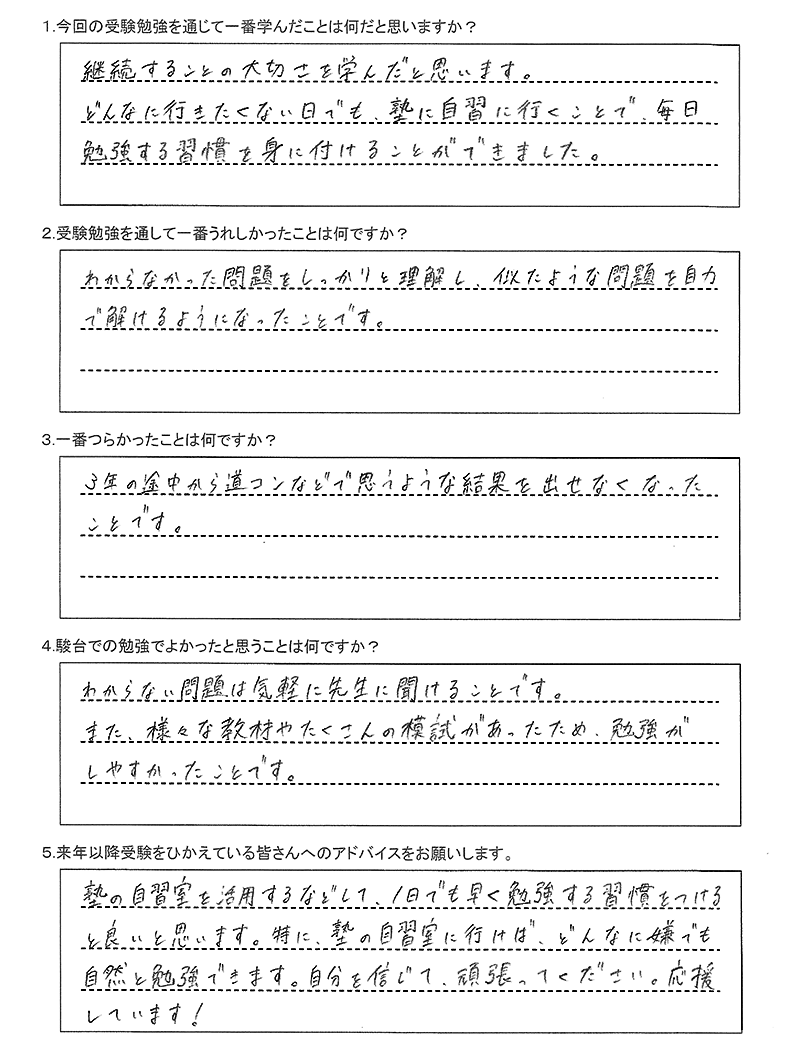 1.今回の受験勉強を通じて一番学んだことは何だと思いますか？
継続することの大切さを学んだと思います。
どんなに行きたくない日でも、塾に自習に行くことで、毎日
勉強する習慣を身に付けることができました。
2.受験勉強を通して一番うれしかったことは何ですか？
わからなかった問題をしっかりと理解し、似たような問題を自力
で解けるようになったことです。
3.一番つらかったことは何ですか？
3年の途中から道コンなどで思うような結果を出せなくなった
ことです。
4.駿台での勉強でよかったと思うことは何ですか？
わからない問題は気軽に先生に聞けることです。
また、様々な教材やたくさんの模試があったため、勉強が
しやすかったことです。
5.来年以降受験をひかえている皆さんへのアドバイスをお願いします。
塾の自習室を活用するなどして、1日でも早く勉強する習慣をつける
と良いと思います。特に、塾の自習室に行けば、どんなに嫌でも
自然と勉強できます。自分を信じて、頑張ってください。応援
しています!